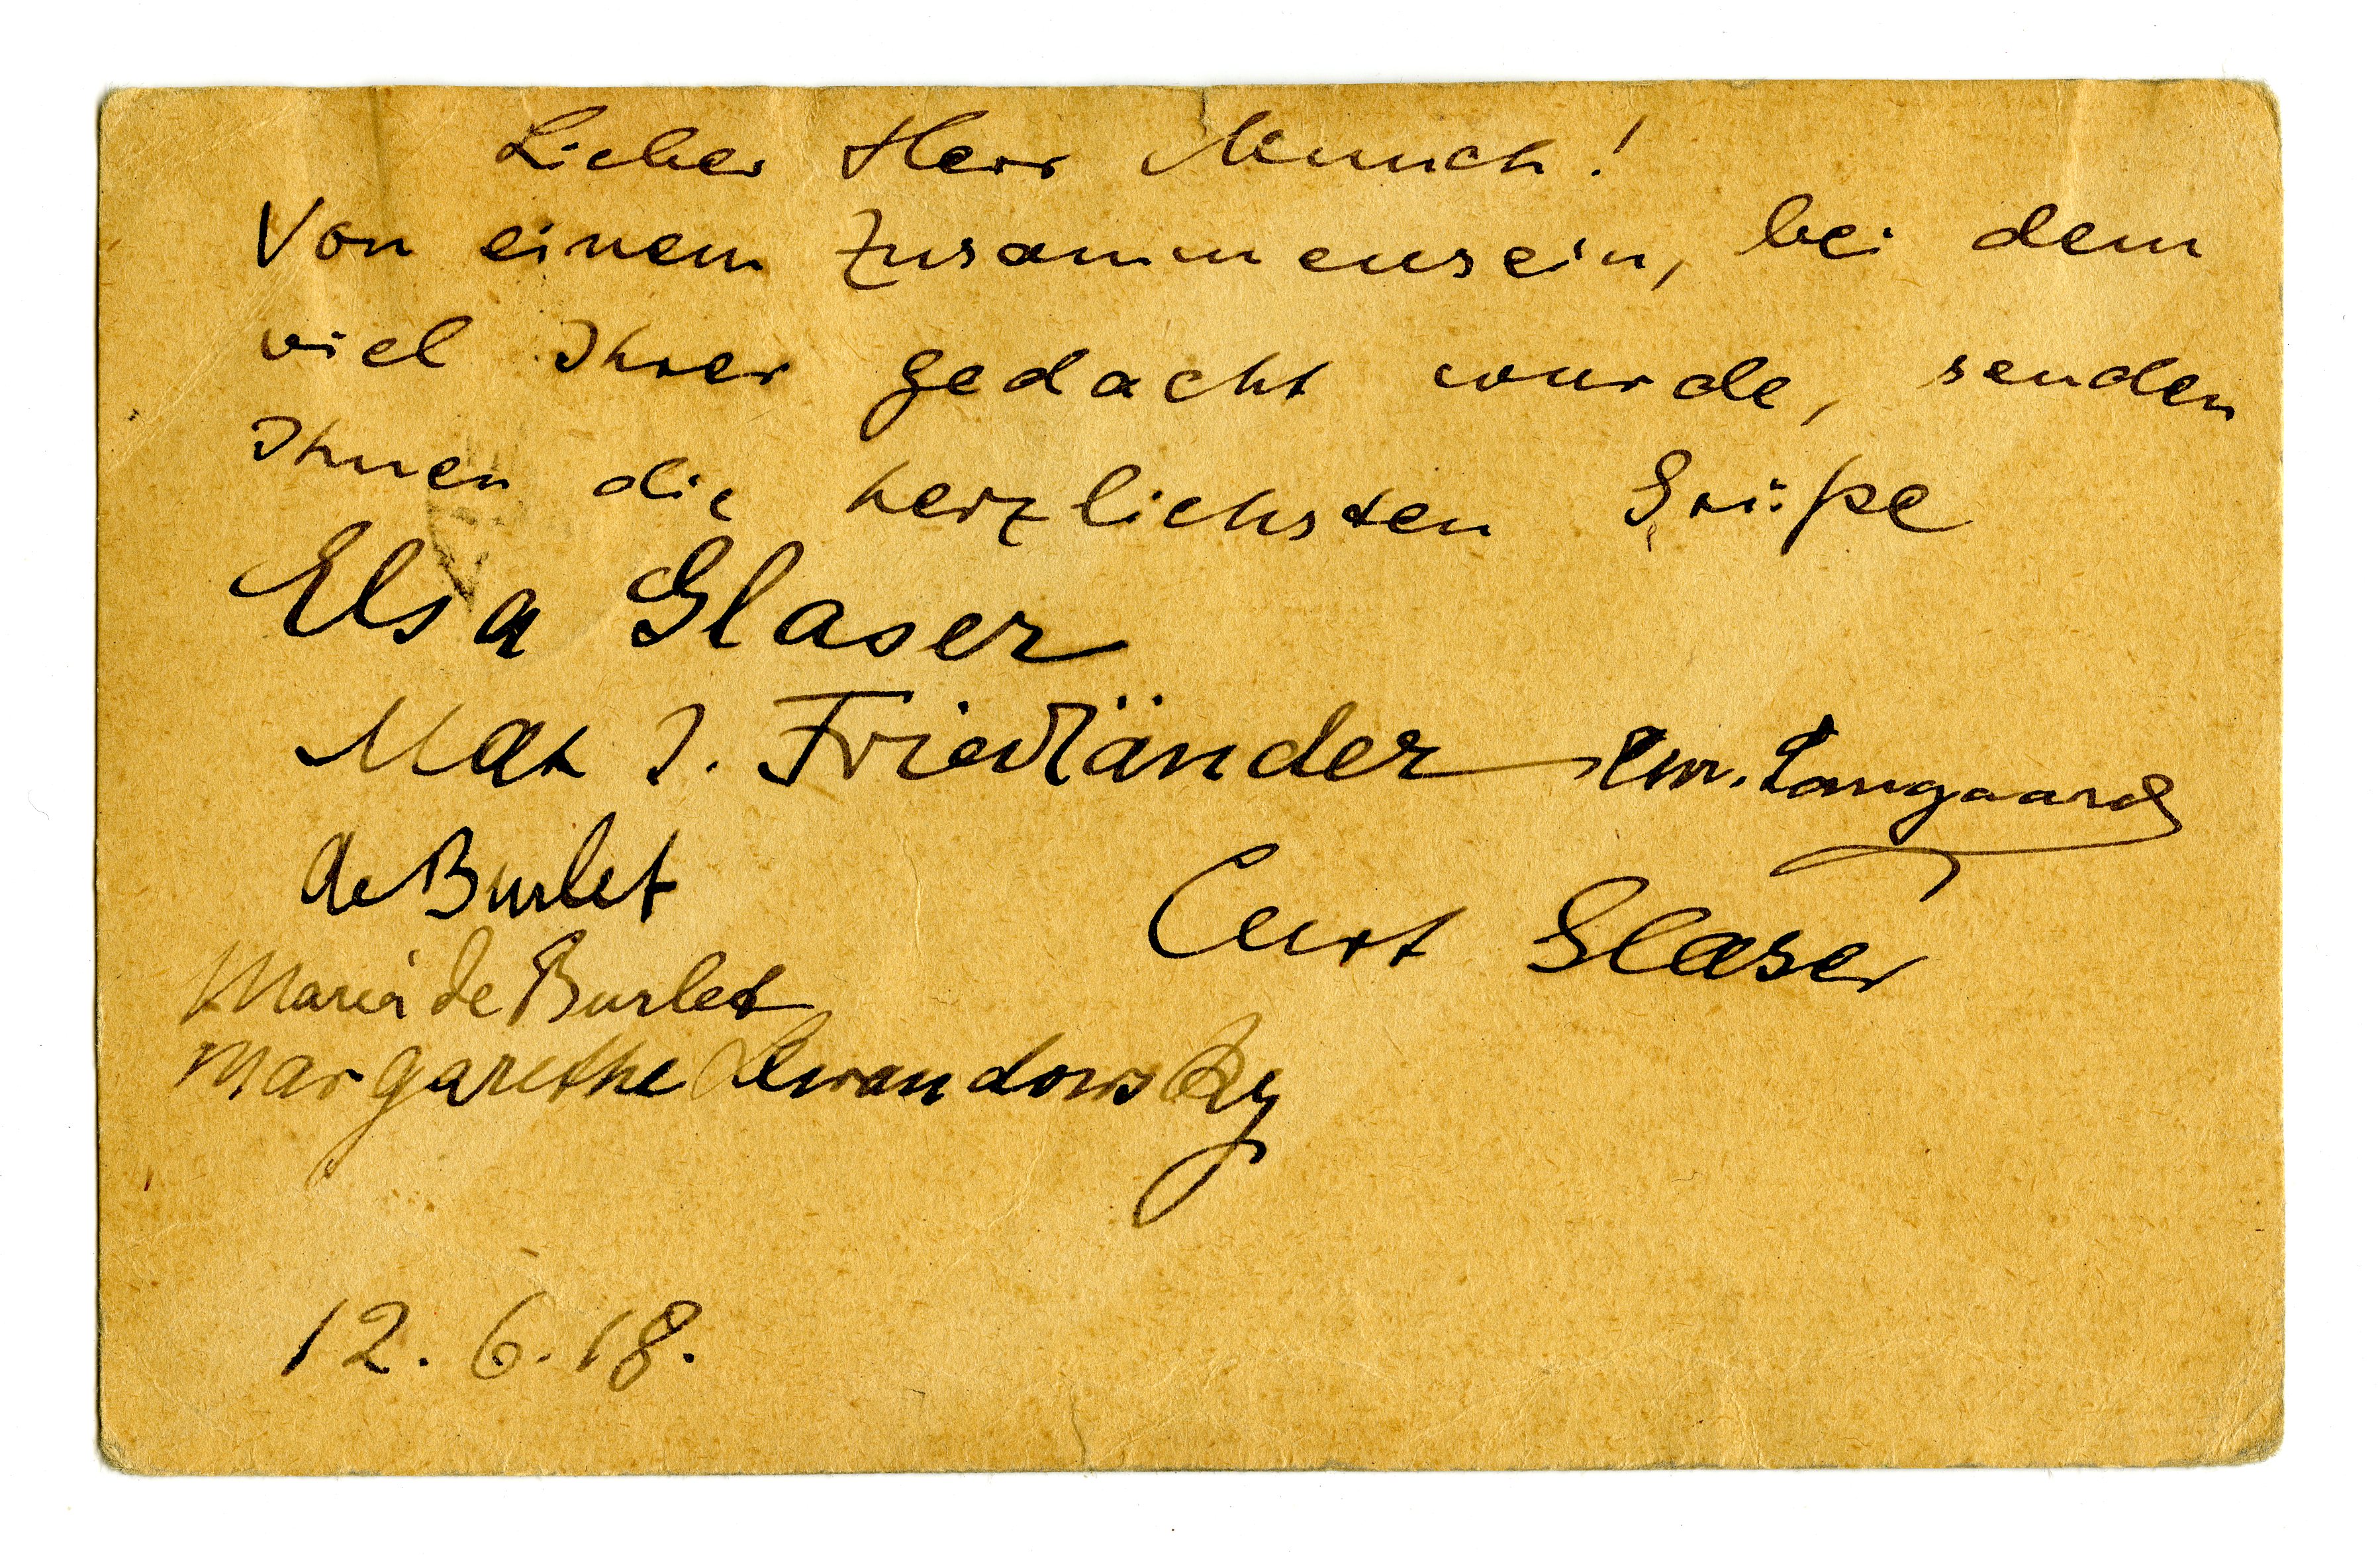 Lieber Herr Munch!
Von einem Zusammensein, bei dem
viel Ihrer gedacht wurde, senden
Ihnen die herzlichsten Grüße
Elsa Glaser
Max J. Friedländer Langaard
de Burlet
Curt Glaser
Maria de Burlet
Margarethe Lewandowsky
12. 6. 18.